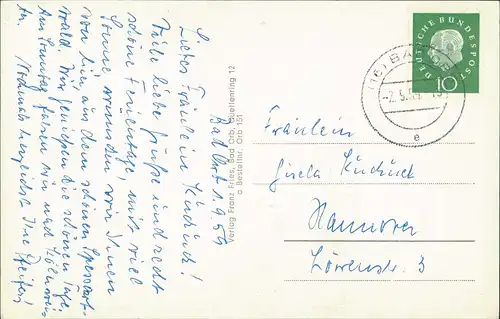 Bad Orb 1.9.59
Liebes Fräulein Küduck!
Viele liebe Grüße und recht
schöne Ferientage, mit viel
Sonne wünschen wir Ihnen
von hier, aus dem schönen Spessart-
wald. Wir genießen die schönen Tage.
Am Sonntag fahren wir nach
Nochmals herzlichst Ihre
Verlag Franz Fries, Bad Orb, Quellenring 12
a Bestellnr. Orb 151
DEUTSCHE BUNDESPOST
10
(16) BAD
-2.9.59
e
Fräulein
Gisela Küduck
Hannover
Löwenstr. 3